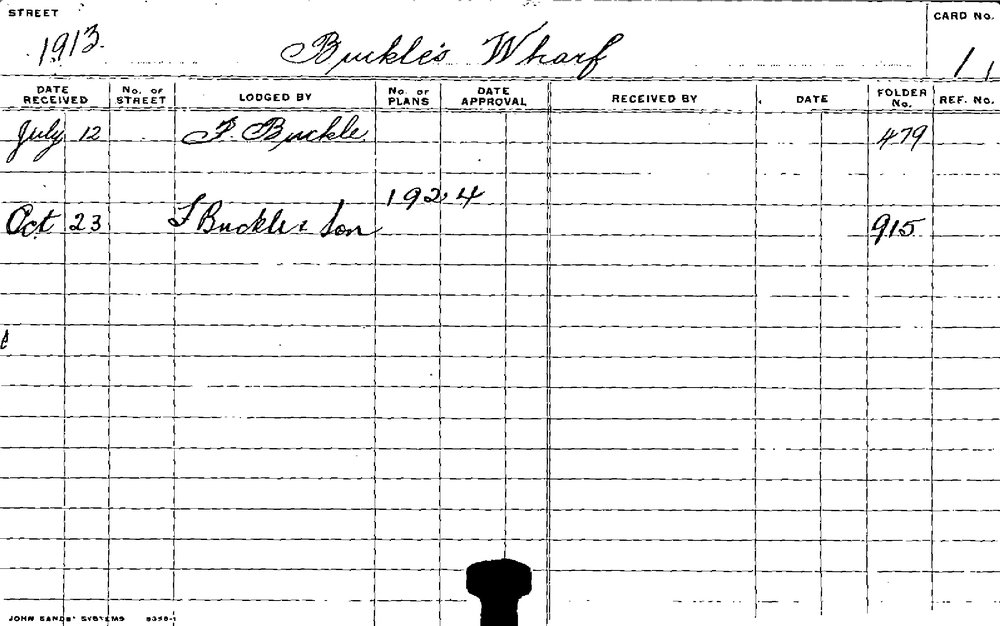 STREET CARD No.
1913. Buckle's Wharf 1
DATE RECEIVED No. OF STREET LODGED BY No. OF PLANS DATE APPROVAL RECEIVED BY DATE FOLDER No. REF. No.
July 12 F. Buckle 479
1924
Oct 23 F Buckle & Son 915
JOHN SANDS' SYSTEMS